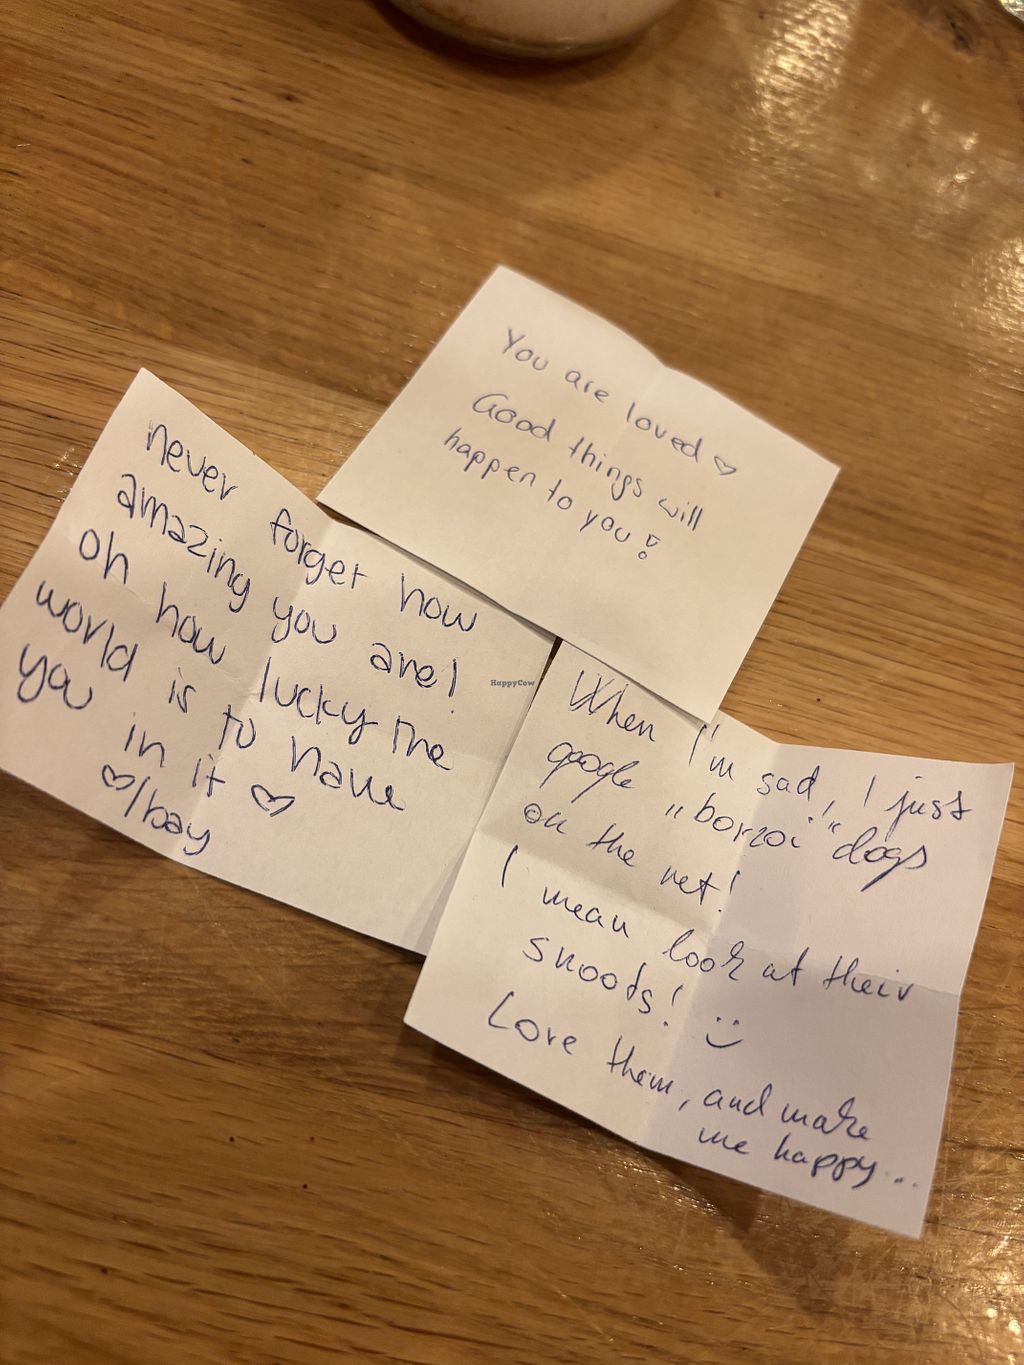 You are loved ♡
Good things will
happen to you!
never forget how
amazing you are!
oh how lucky the
world is to have
you in it ♡
♡/bay
HappyCow
When I'm sad, I just
google „borzoi“ dogs
on the net!
I mean look at their
snoots! :)
Love them, and make
me happy...